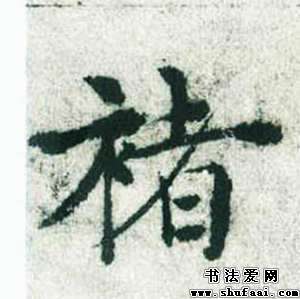 褚
书法爱网
www.shufaai.com